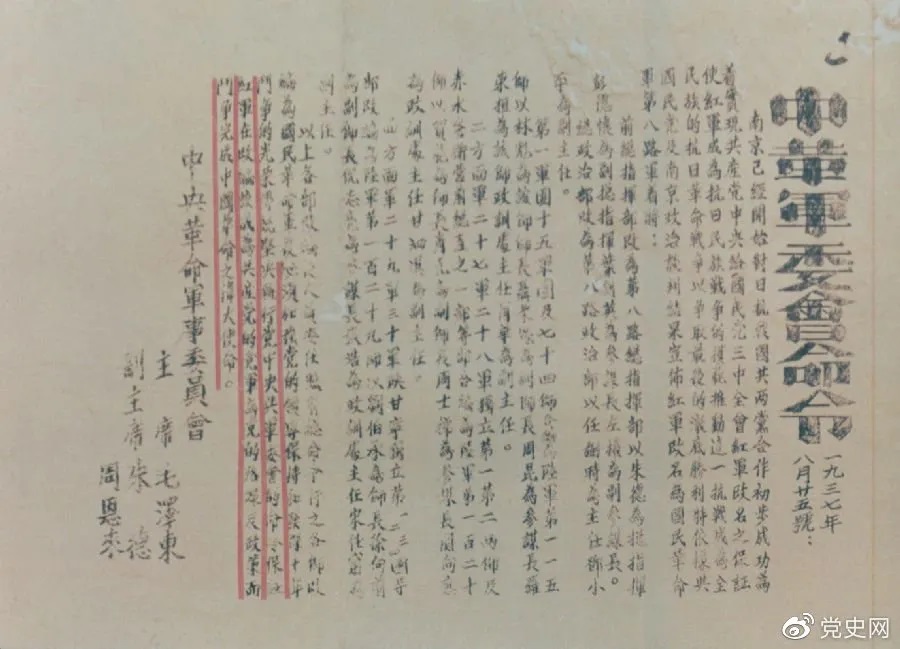 中革軍委會命令
一九三七年
八月廿五號：
南京已經開始對日抗戰國共兩黨合作初步成功為
着實現共産党中央給國民党三中全會紅軍改名之保証
使紅軍成為抗日民族戰争的模範推動這一抗戰成為全
民族的抗日革命戰争以争取最後的澈底勝利特依據與
國民党及南京政治談判結果宣佈紅軍改名為國民革命
軍第八路軍着將：
前總指揮部改為第八路總指揮部以朱德為總指揮
彭德懷為副總指揮葉劍英為參謀長左權為副參謀長。
總政治部改為第八路政治部以任弼時為主任鄧小
平為副主任。
第一軍團十五軍團及七十四師合編為陸軍第一一五
師以林彪為該師師長聶榮臻為副師長周昆為參謀長羅
榮桓為該師政訓處主任蕭華為副主任。
二方面軍二十七軍二十八軍獨立第一第二兩師及
赤水警衛營前總直之一部等部合編為陸軍第一百二十
師以賀龍為師長蕭克為副師長周士第為參謀長關向應
為政訓處主任甘泗淇為副主任。
四方面軍二十九軍三十軍陝甘寧獨立第一二三四等
部改編為陸軍第一百二十九師以劉伯承為師長徐向前
為副師長倪志亮為參謀長張浩為政訓處主任宋任窮為
副主任。
以上各部改編後人員委任照前總命令行之各師改
編為國民革命軍後必須加強党的領導保持和發揮十年
鬥争的光榮傳統堅決執行党中央與軍委會的命令保证
紅軍在改編後成為共産党的党軍為党的路線及政策而
鬥争完成中國革命之偉大使命。
中央革命軍事委員會
主席 毛澤東
副主席 朱德
周恩來
@党史网